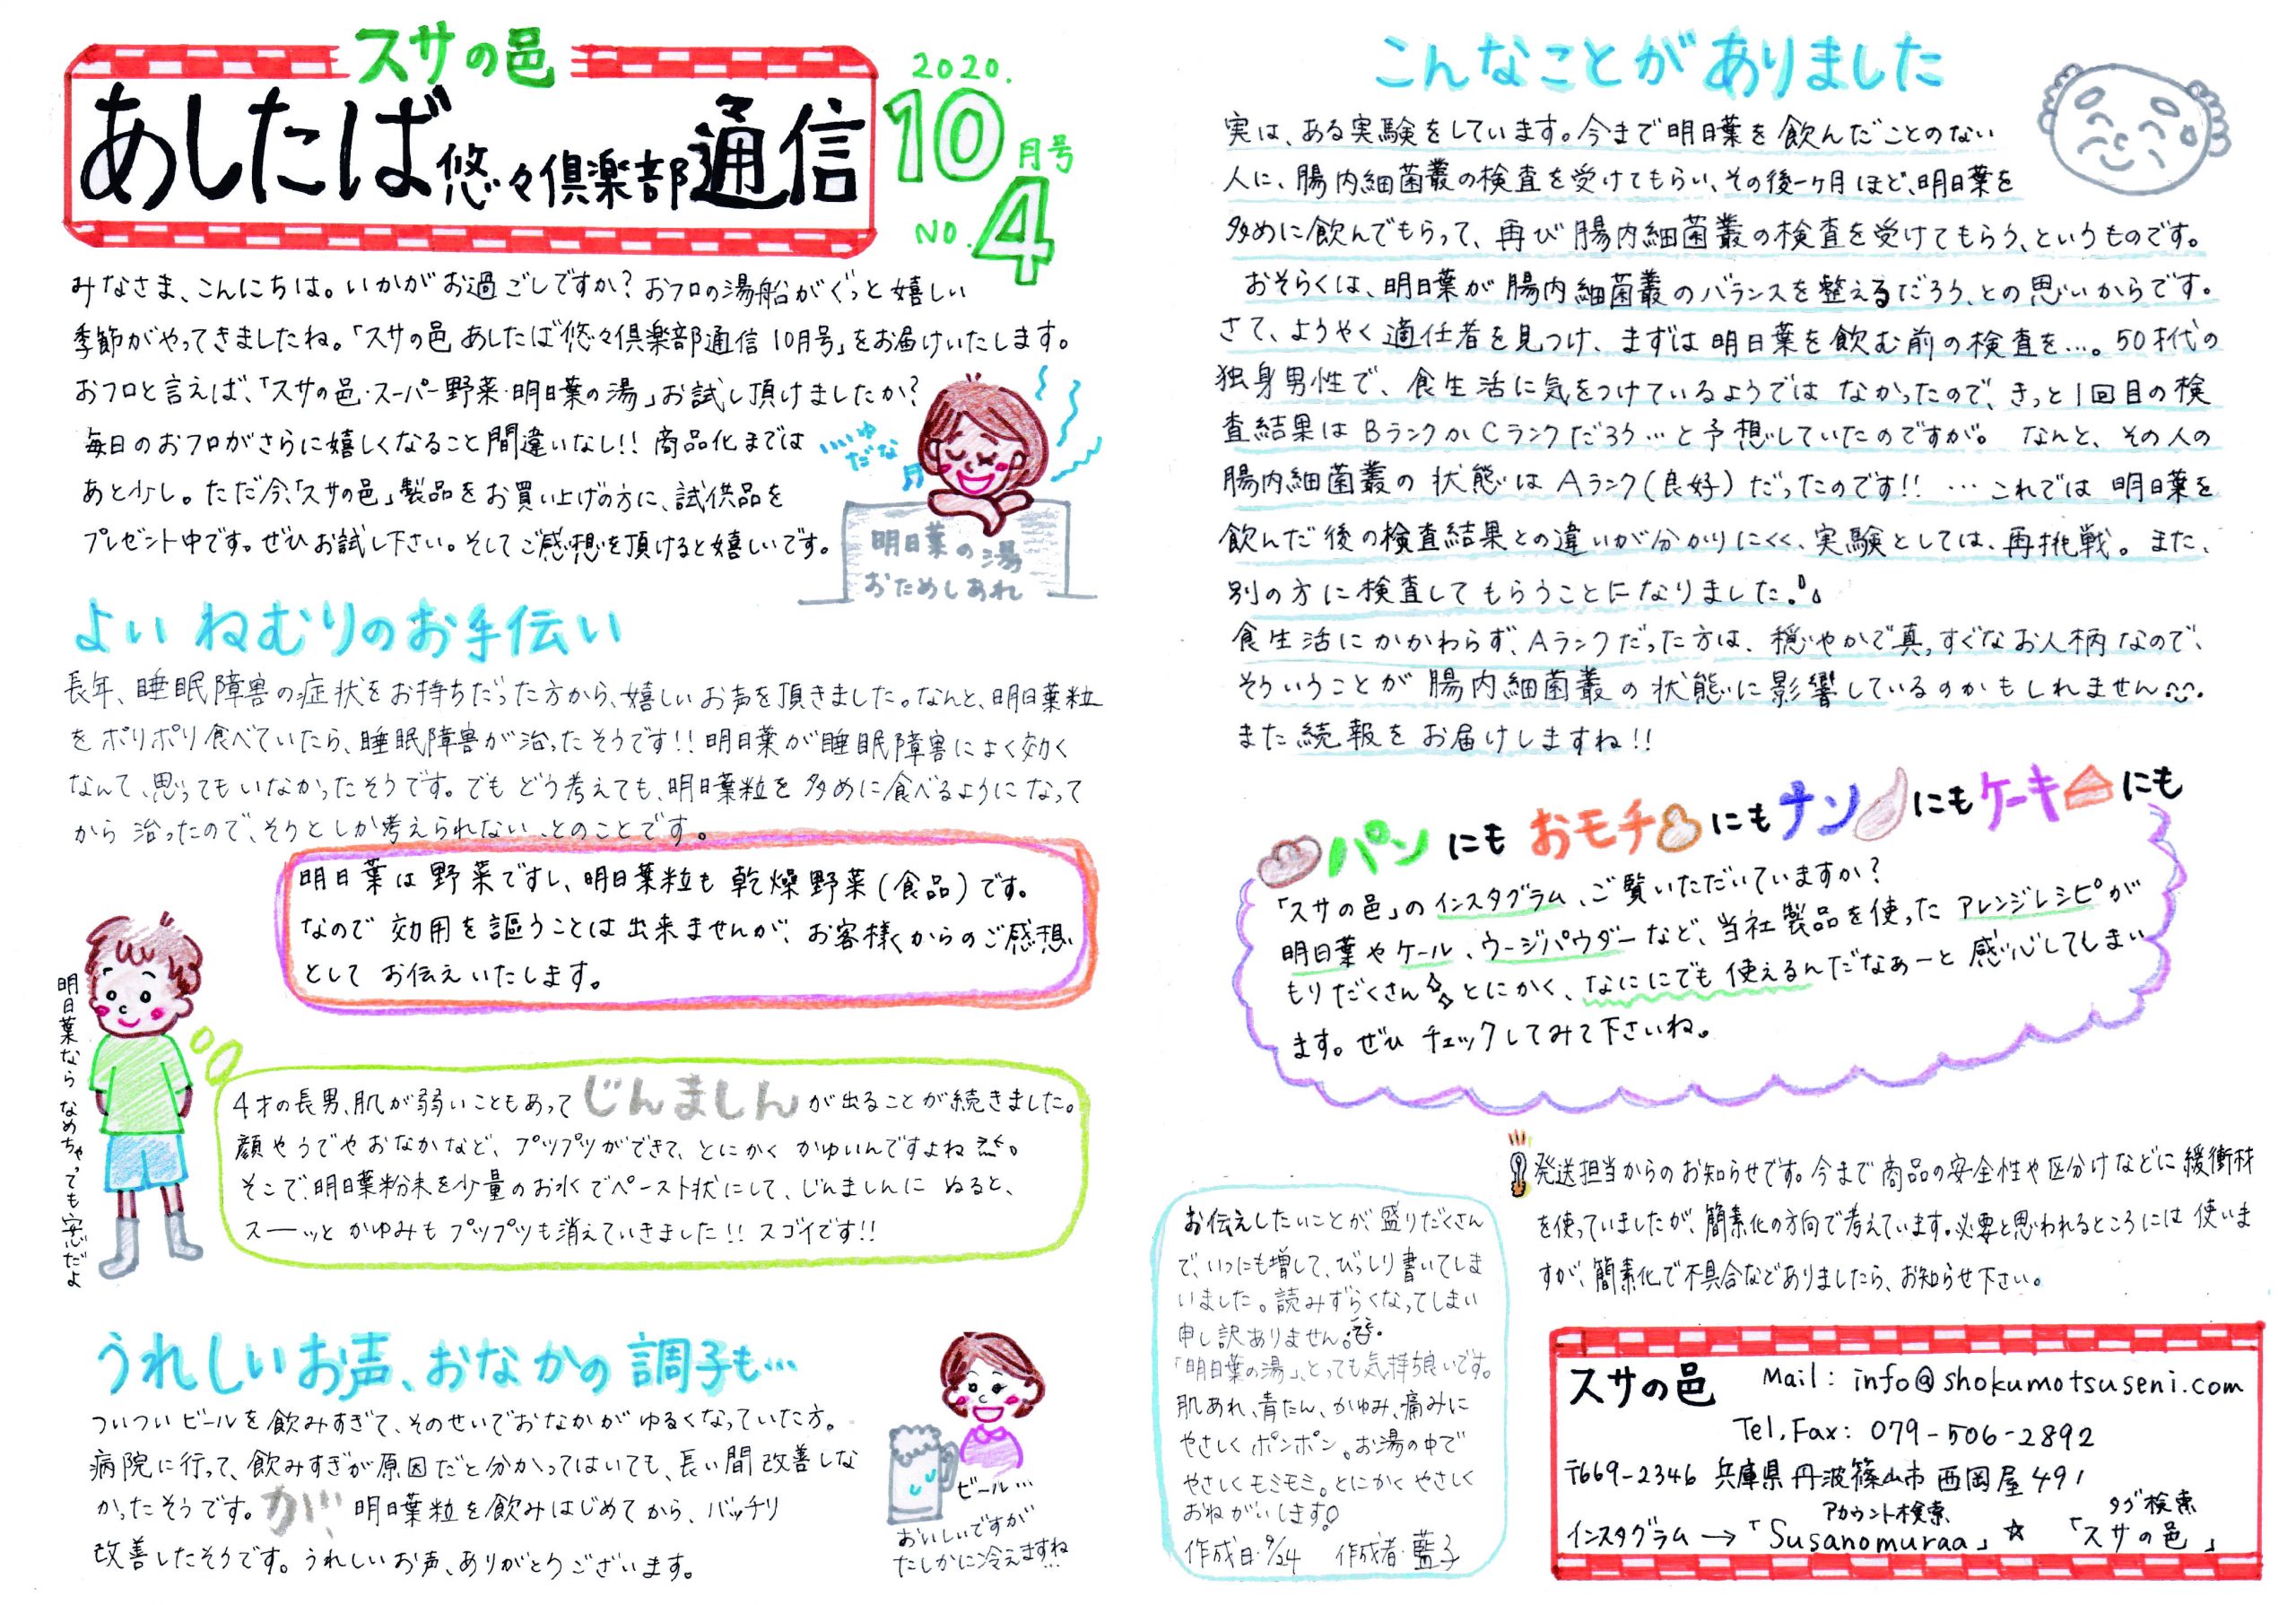 スサの邑
あしたば悠々倶楽部通信
2020.
10月号
NO.4
みなさま、こんにちは。いかがお過ごしですか?おフロの湯船がぐっと嬉しい
季節がやってきましたね。「スサの邑 あしたば悠々倶楽部通信 10月号」をお届けいたします。
おフロと言えば、「スサの邑・スーパー野菜・明日葉の湯」お試し頂けましたか?
毎日のおフロがさらに嬉しくなること間違いなし!!商品化までは
あと少し。ただ今、「スサの邑」製品をお買い上げの方に、試供品を
プレゼント中です。ぜひお試し下さい。そしてご感想を頂けると嬉しいです。
いいゆ
だな
明日葉の湯
おためしあれ
よいねむりのお手伝い
長年、睡眠障害の症状をお持ちだった方から、嬉しいお声を頂きました。なんと、明日葉粒
をポリポリ食べていたら、睡眠障害が治ったそうです!!明日葉が睡眠障害によく効く
なんて、思ってもいなかったそうです。でもどう考えても、明日葉粒を多めに食べるようになって
から治ったので、そうとしか考えられない、とのことです。
明日葉は野菜ですし、明日葉粒も乾燥野菜(食品)です。
なので効用を謳うことは出来ませんが、お客様からのご感想
としてお伝えいたします。
明日葉ならなめちゃっても安心だよ
4才の長男、肌が弱いこともあってじんましんが出ることが続きました。
顔やうでやおなかなど、プツプツができて、とにかくかゆいんですよね。
そこで、明日葉粉末を少量のお水でペースト状にして、じんましんにぬると、
スーーッとかゆみもプツプツも消えていきました!!スゴイです!!
うれしいお声、おなかの調子も…
ついついビールを飲みすぎて、そのせいでおなかがゆるくなっていた方。
病院に行って、飲みすぎが原因だと分かってはいても、長い間改善しな
かったそうです。が、明日葉粒を飲みはじめてから、バッチリ
改善したそうです。うれしいお声、ありがとうございます。
ビール…
おいしいですが
たしかに冷えますね…
こんなことがありました
実は、ある実験をしています。今まで明日葉を飲んだことのない
人に、腸内細菌叢の検査を受けてもらい、その後一ヶ月ほど、明日葉を
多めに飲んでもらって、再び腸内細菌叢の検査を受けてもらう、というものです。
おそらくは、明日葉が腸内細菌叢のバランスを整えるだろう、との思いからです。
さて、ようやく適任者を見つけ、まずは明日葉を飲む前の検査を…。50才代の
独身男性で、食生活に気をつけているようではなかったので、きっと1回目の検
査結果はBランクかCランクだろう…と予想していたのですが。なんと、その人の
腸内細菌叢の状態はAランク(良好)だったのです!!…これでは明日葉を
飲んだ後の検査結果との違いが分かりにくく、実験としては、再挑戦。また、
別の方に検査してもらうことになりました。
食生活にかかわらず、Aランクだった方は、穏やかで真っすぐなお人柄なので、
そういうことが腸内細菌叢の状態に影響しているのかもしれません。
また続報をお届けしますね!!
パンにもおモチにもナンにもケーキにも
「スサの邑」のインスタグラム、ご覧いただいていますか?
明日葉やケール、ウージパウダーなど、当社製品を使ったアレンジレシピが
もりだくさん とにかく、なににでも使えるんだなあーと感心してしまい
ます。ぜひチェックしてみて下さいね。
発送担当からのお知らせです。今まで商品の安全性や区分けなどに緩衝材
を使っていましたが、簡素化の方向で考えています。必要と思われるところには使いま
すが、簡素化で不具合などありましたら、お知らせ下さい。
お伝えしたいことが盛りだくさん
で、いつにも増して、びっしり書いてしま
いました。読みずらくなってしまい
申し訳ありません。
「明日葉の湯」、とっても気持ち良いです。
肌あれ、青たん、かゆみ、痛みに
やさしくポンポン。お湯の中で
やさしくモミモミ。とにかくやさしく
おねがいします。
作成日・9/24 作成者・藍子
スサの邑 Mail: info@shokumotsuseni.com
Tel,Fax: 079-506-2892
〒669-2346 兵庫県丹波篠山市西岡屋491
アカウント検索 タグ検索
インスタグラム→「Susanomuraa」☆「スサの邑」